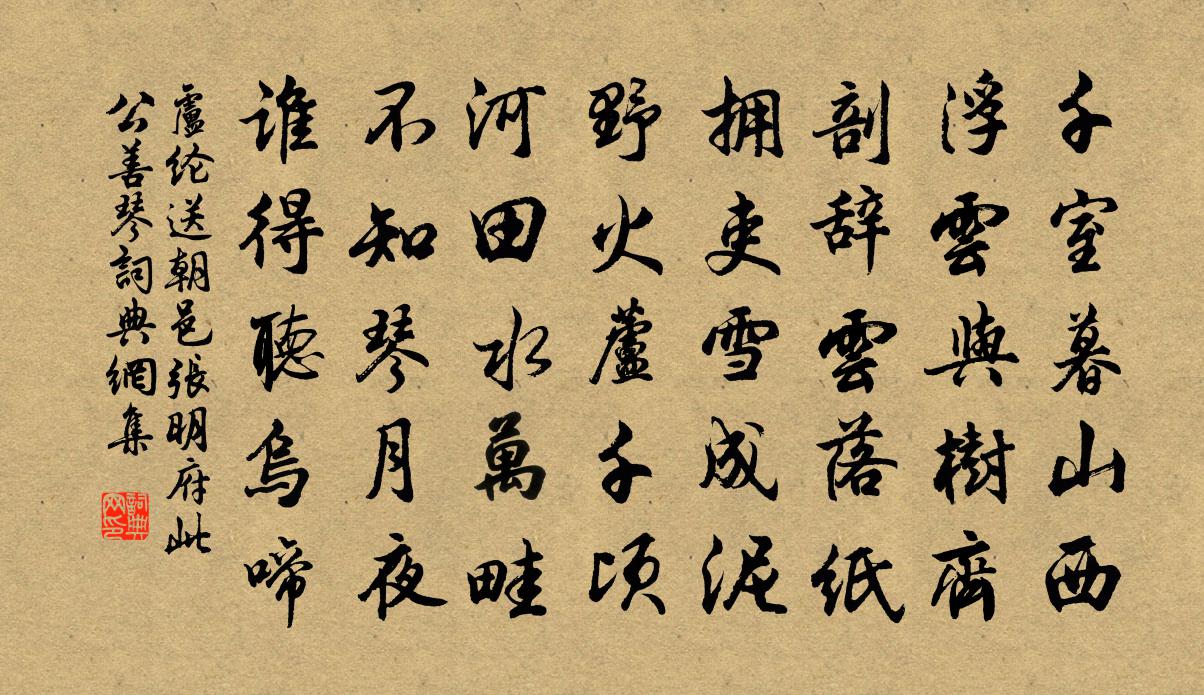 千室暮山西
浮雲與樹齊
剖辞雲落紙
拥吏雪成泥
野火蘆千頃
河田水萬畦
不知琴月夜
谁得聽烏啼
盧纶送朝邑張明府此
公善琴詞典網集
詞典网印